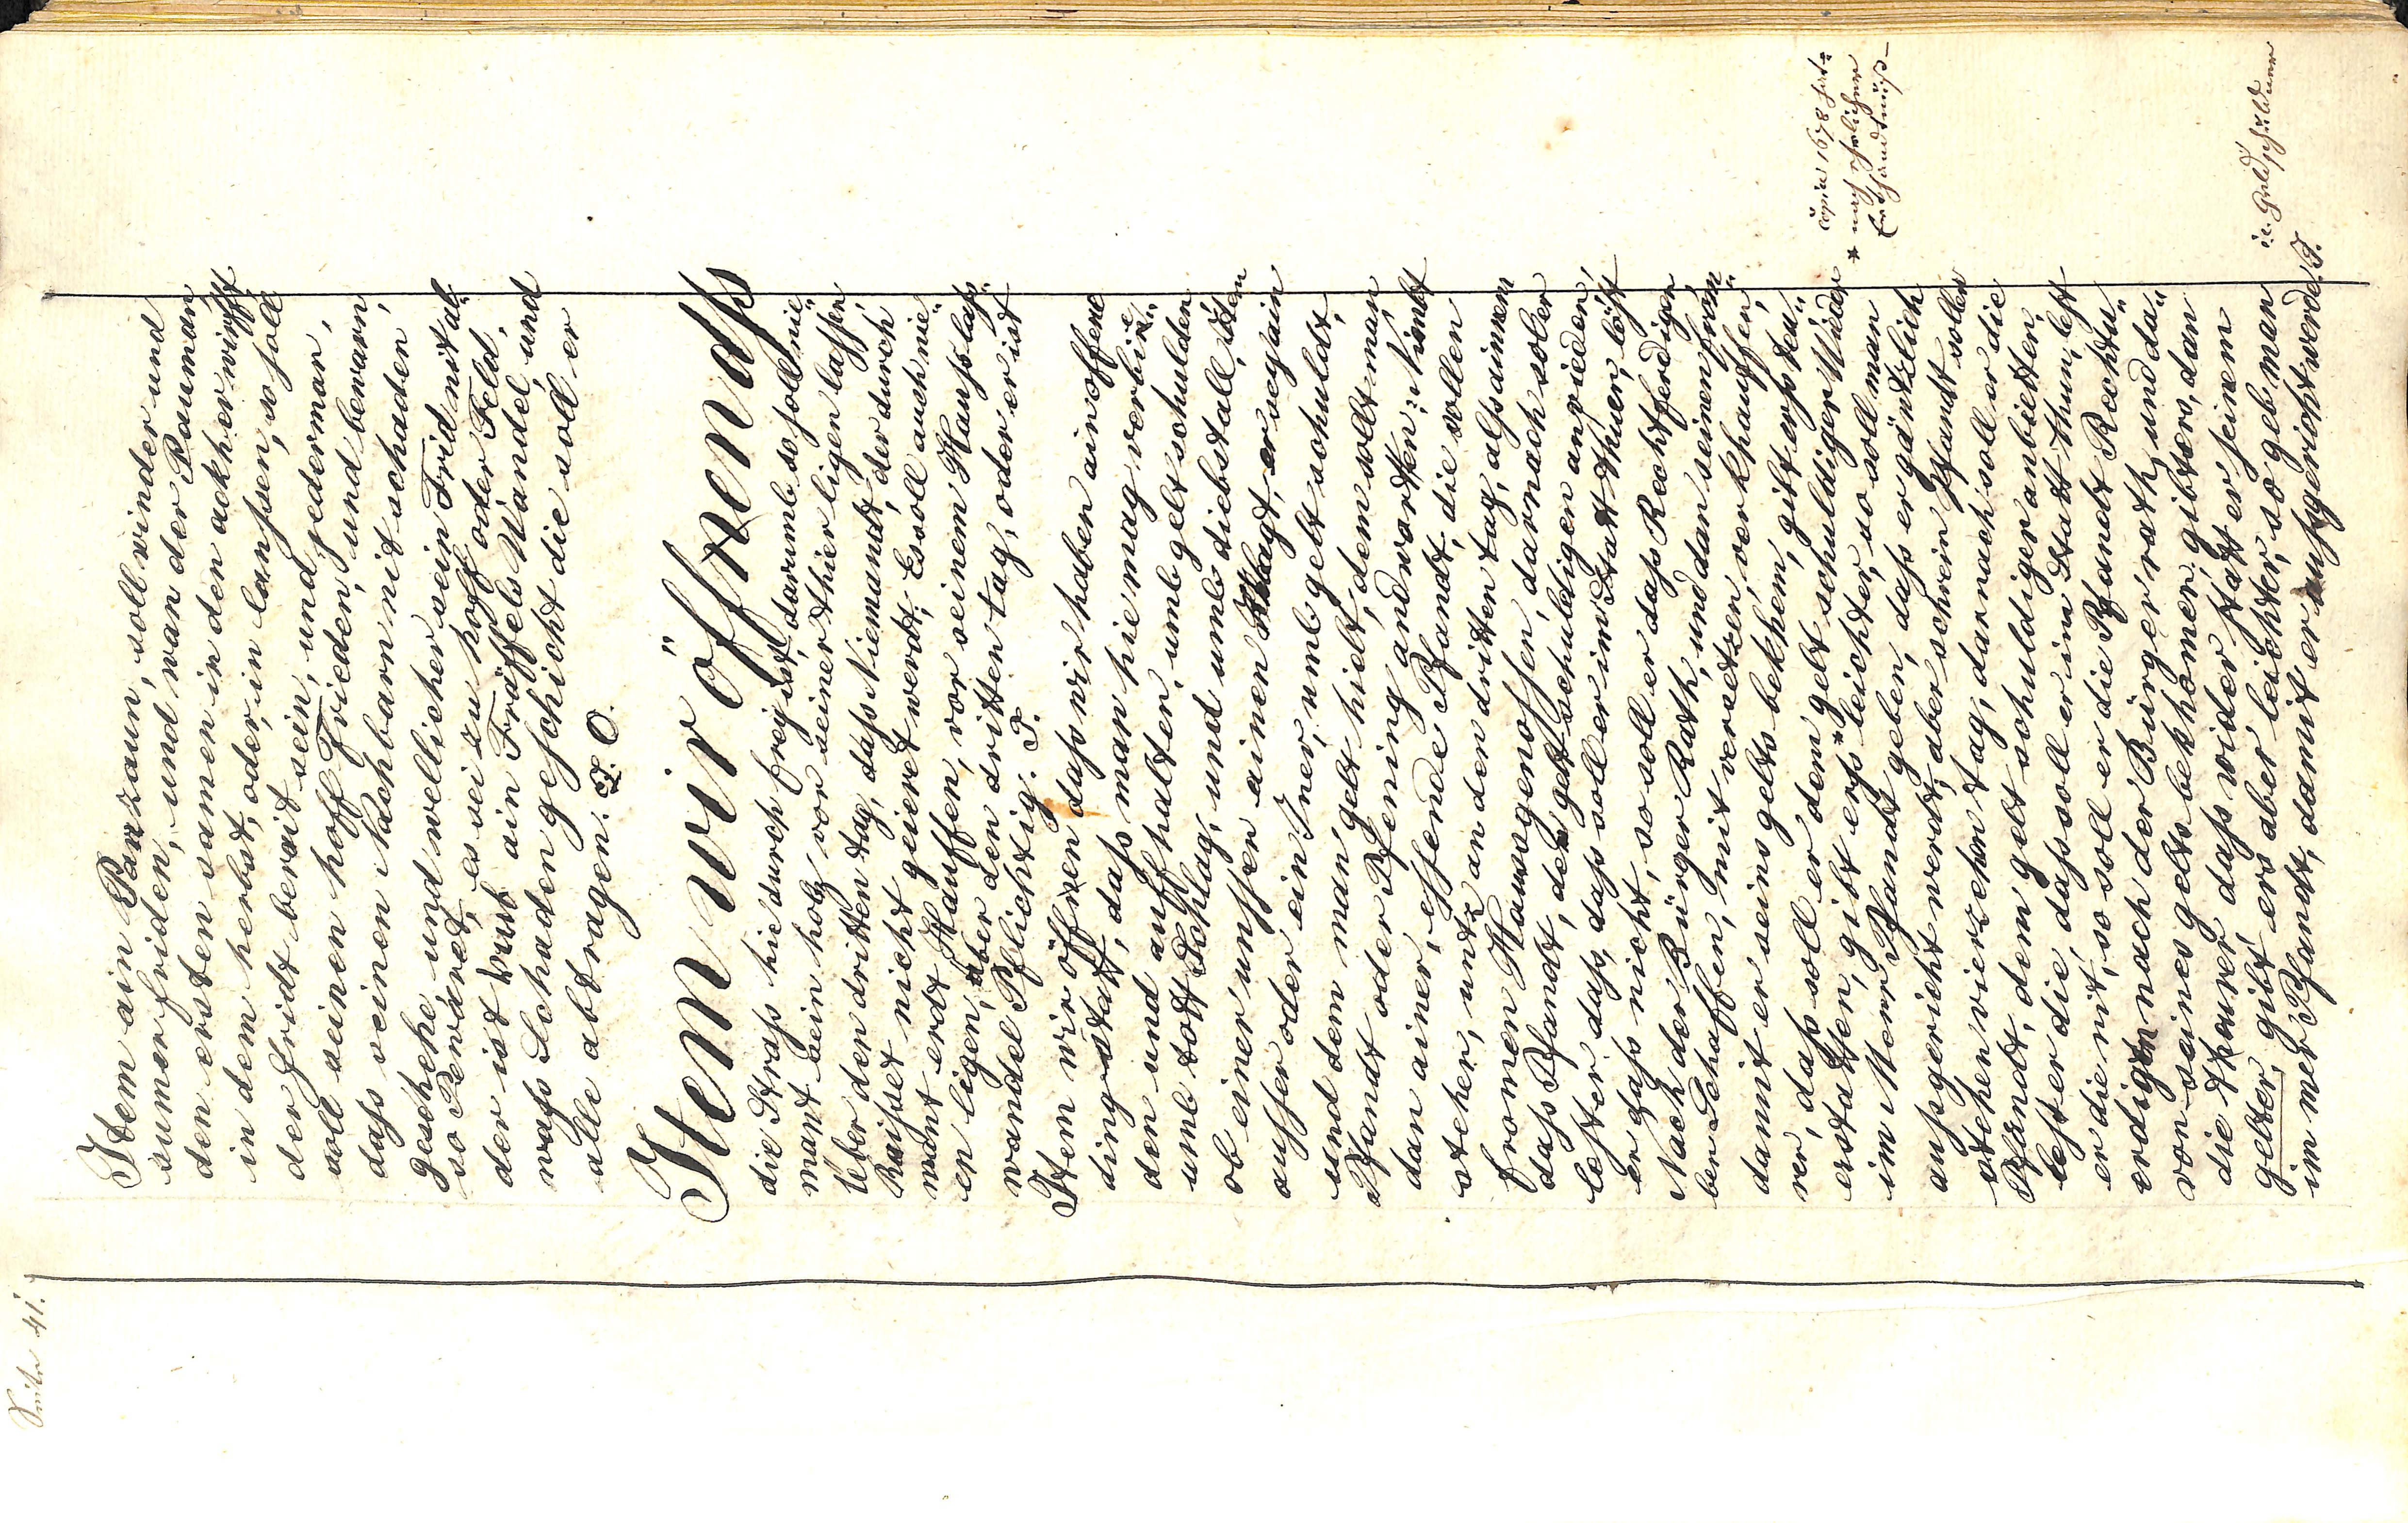 Seite 41.
Item ain Panzaun, soll winder und
sumer friden, und wan der Pauman
den ersten samen in den ackher wirfft
in dem herbst, oder in lanssen, so soll
der fridt bereit sein, und jederman,
soll seinen hoff Frieden, und bewarn,
dass seinen Nachbarn nit schaden
geschehe und wellicher sein Frid nit al„
so Bewäret, es sei zu hoff oder Feld,
der ist umb ain Fräffels Wandel, und
wass Schaden geschicht die soll er
alle abtragen. T. O.
Item wir öffnen dass
die Strass hie durch frey ist, darumb so soll nie„
mant sein holz, vor seiner thier ligen lassen
Über den dritten tag, dass Niemandt, der durch
Raisset nicht geieret werdt, Es soll auch nie„
mant erdt Hauffen, vor seinem Hauss lass„
en ligen, über den dritten tag, oder er ist
wandel Pflichtig. T.
Item wir öffnen dass wir haben ain offene
ding statt, dass man hie mag verbie„
den und auff halten, umb gelt schulden
umb todt Schlag, und umb diebstall, Item
ob einer unsser ainen Khlagt, er sey ain
ausser oder ein Iner, umb gelt schuldt,
und dem man gelt hielt, dem sollt man
Pfandt oder Pfening andworten, Nimbt
dan ainer, essende Pfandt, die sollen
stehen, untz an den dritten tag, als ainem
fromen Hawssgenossen, darnach soll er
dass Pfandt, dem gelt schuldigen anvieden,
lest er dass, dass soll er im Statt thuen, löst
er dass nicht, so soll er dass Rechtferdigen
Nach der Bürger Rath, und dan seinen from„
ben Schaffen, mit versetzen, verkhauffen,
damit er seins gelts bekhem, gilt erss teu„
rer, dass soll er dem * gelt schuldiger Wider
erstatten, gibt erss leichter, so soll man
im Merr Pfandt geben, dass er gäntzlich
aussgericht werdt, aber schrein Pfandt sollen
stehen vierzehen tag, darnach soll er die
Pfandt, dem gelt schuldiger anbietten,
lest er die, dass soll er im Statt thun, lest
er die nit, so soll er die Pfandt Rechtu„
erdigen nach der Bürger rath, und da„
von seines gelts bekhomer, gibt ers, dan
die theurer dass wider statt er seinem
gelter, gibt ers aber leichter, so geb man
im mer Pfandt, damit er aussgericht werde. T.
Copia 1678 hat:
* nach ehrlicher
Erkhandtnüss
i.e. Geldschuldner